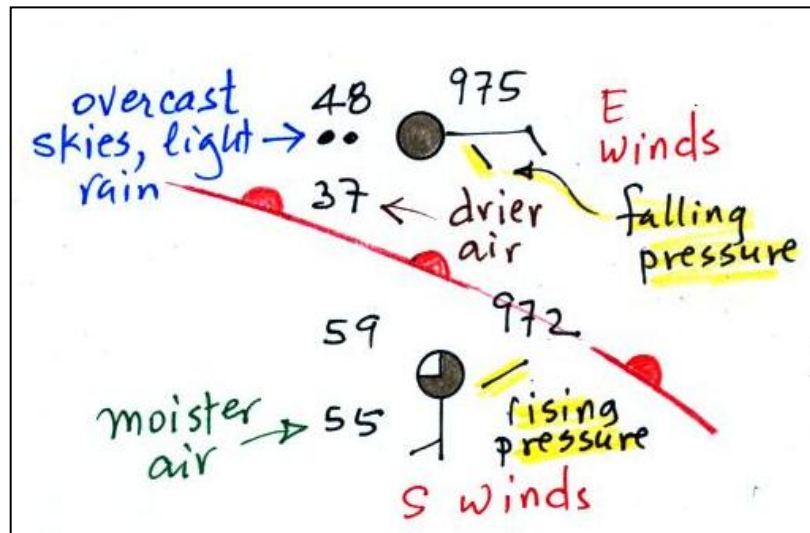 48
975
overcast
skies, light
rain
E
winds
37
drier
air
falling
pressure
59
972
moister
air
55
rising
pressure
S winds